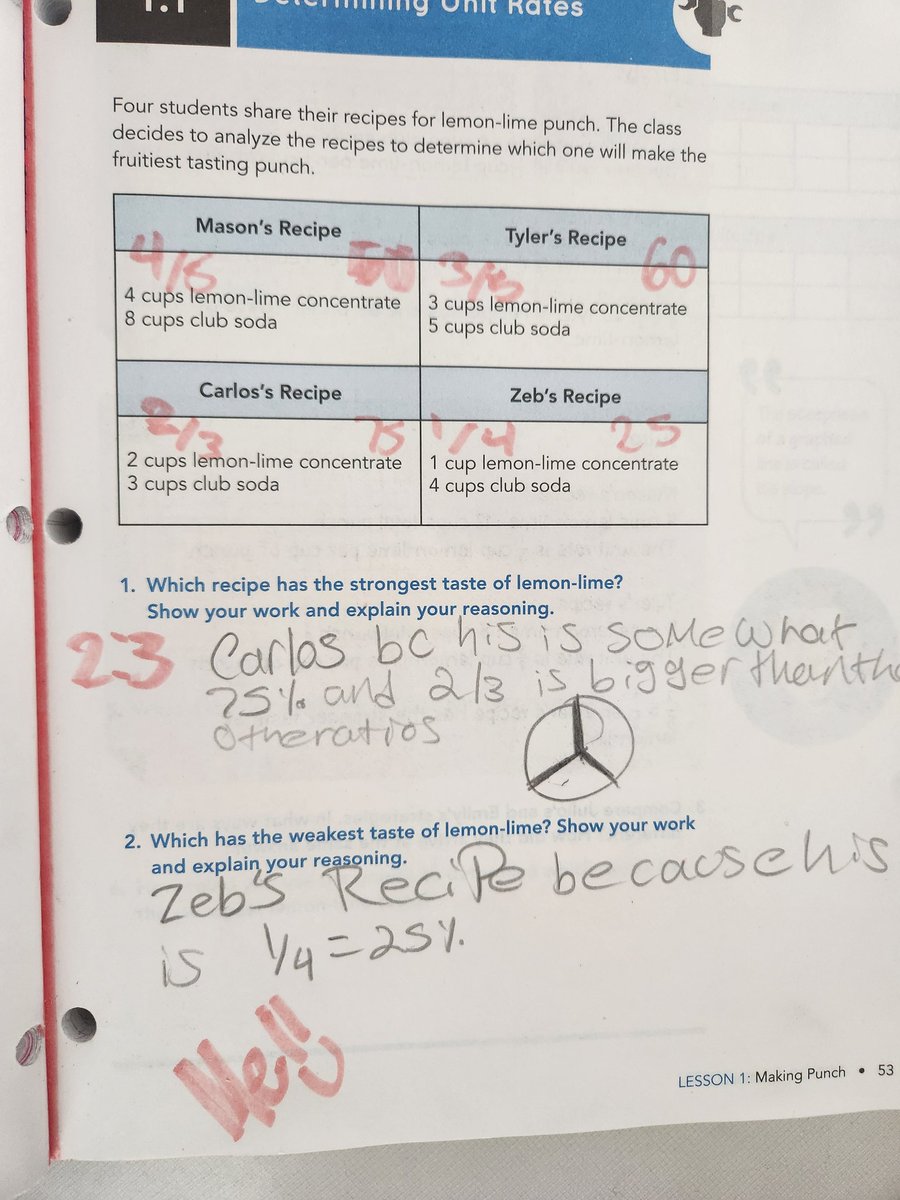 1.1
Determining Unit Rates
Four students share their recipes for lemon-lime punch. The class
decides to analyze the recipes to determine which one will make the
fruitiest tasting punch.
Mason's Recipe
4/8
4 cups lemon-lime concentrate
8 cups club soda
Tyler's Recipe
3/5 60
3 cups lemon-lime concentrate
5 cups club soda
Carlos's Recipe
2/3 75
2 cups lemon-lime concentrate
3 cups club soda
Zeb's Recipe
1/4 25
1 cup lemon-lime concentrate
4 cups club soda
1. Which recipe has the strongest taste of lemon-lime?
Show your work and explain your reasoning.
23 Carlos bc his is somewhat
75% and 2/3 is bigger than the
other ratios
2. Which has the weakest taste of lemon-lime? Show your work
and explain your reasoning.
Zeb's Recipe because his
is 1/4 = 25%
LESSON 1: Making Punch • 53